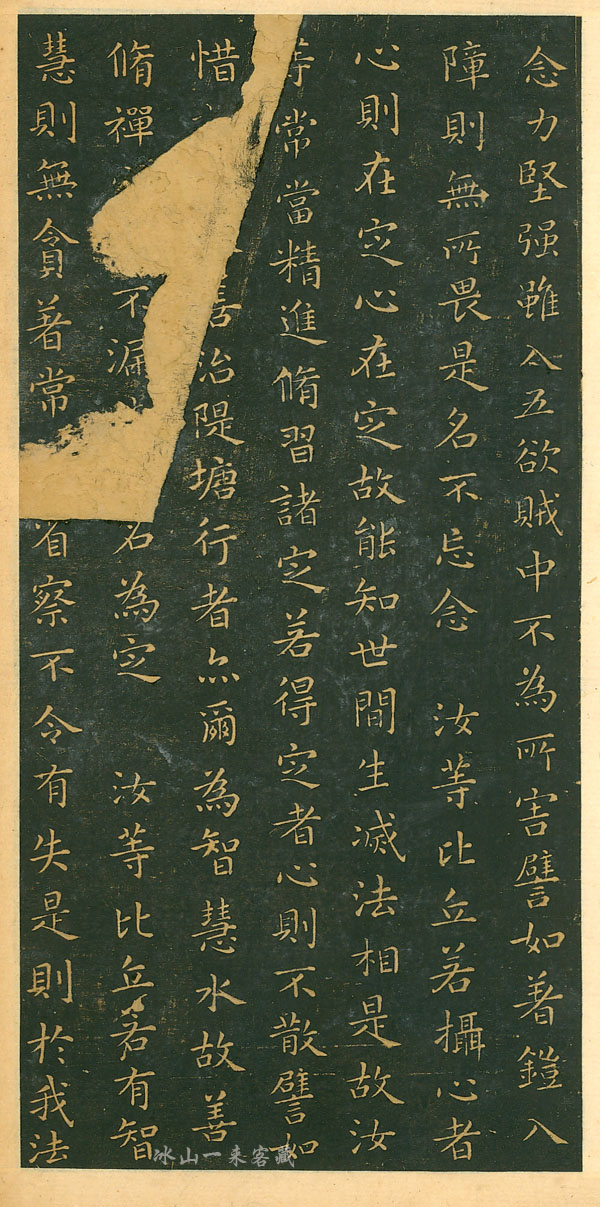 念力堅强雖入五欲賊中不為所害譬如著鎧入
障則無所畏是名不忘念　汝等比丘若攝心者
心則在定心在定故能知世間生滅法相是故汝
等常當精進脩習諸定若得定者心則不散譬如
惜善治隄塘行者亦爾為智慧水故善
脩禪不漏名為定　汝等比丘若有智
慧則無貪著常省察不令有失是則於我法
冰山一来客藏